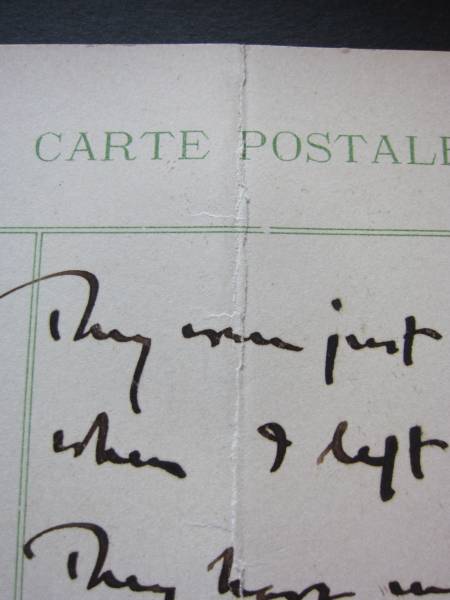 CARTE POSTALE
They were just
when I left
They have